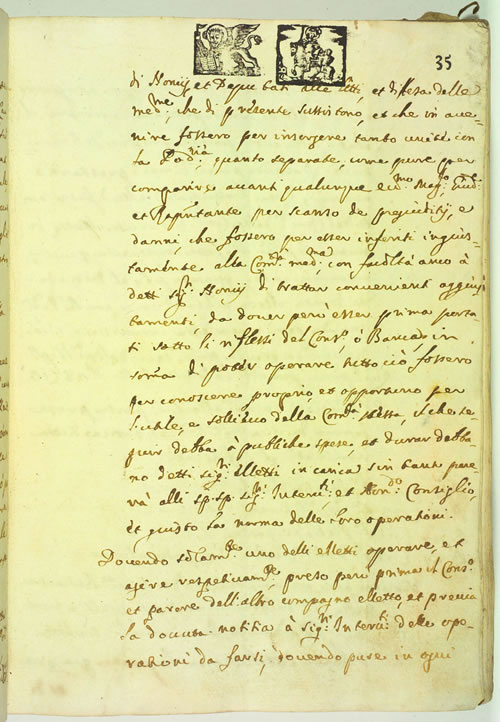 35
di Noncij et Deputati alle liti, et difesa delle
med:me, che di presente sussistono, et che in ave-
nire fossero per insorgere tanto unite con
la Pod:ria, quanto separate, come pure per
comparire avanti qualunque ecc:mo Mag:to Giud:e
et Rapp:ntante per scanso de pregiuditij, e
danni, che fossero per esser inferiti ingius-
tamente alla Com:tà med:ma, con facoltà anco à
detti sig:ri Noncij di trattar convenienti aggius-
tamenti, da dover però esser prima porta-
ti sotto li riflessi del Cons:o, ò Banca, in
soma di poter operare tutto ciò, fossero
per conoscere proprio, et opportuno per
l'utile, e sollievo della Com:tà stessa, il che se-
guir debba à publiche spese, et durar debba-
no detti sig:ri elletti in carica sin tanto pare-
rà alli sp. sp. sig:ri Interv:ti, et Consiglio,
et giusto la norma delle loro operationi.
Dovendo solam:te uno delli elletti operare, et
agire respetivam:te, preso però prima il Cons:o
et parere dell'altro compagno elletto, et previa
la dovuta notitia à Sig:ri Interv:ti delle ope-
rationi da farsi, dovendo pure in ogni